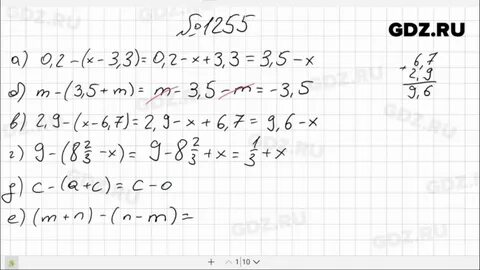 №1255
GDZ.RU
а) 0,2-(x-3,3)=0,2-x+3,3=3,5-x
б) m-(3,5+m)=m-3,5-m=-3,5
в) 2,9-(x-6,7)=2,9-x+6,7=9,6-x
г) 9-(8 2/3 -x)= 9-8 2/3 +x= 1/3 +x
д) c-(a+c)=c-a
е) (m+n)-(n-m)=
+ 6,7
2,9
9,6
GDZ.RU
GDZ.RU
GDZ.RU
1|10